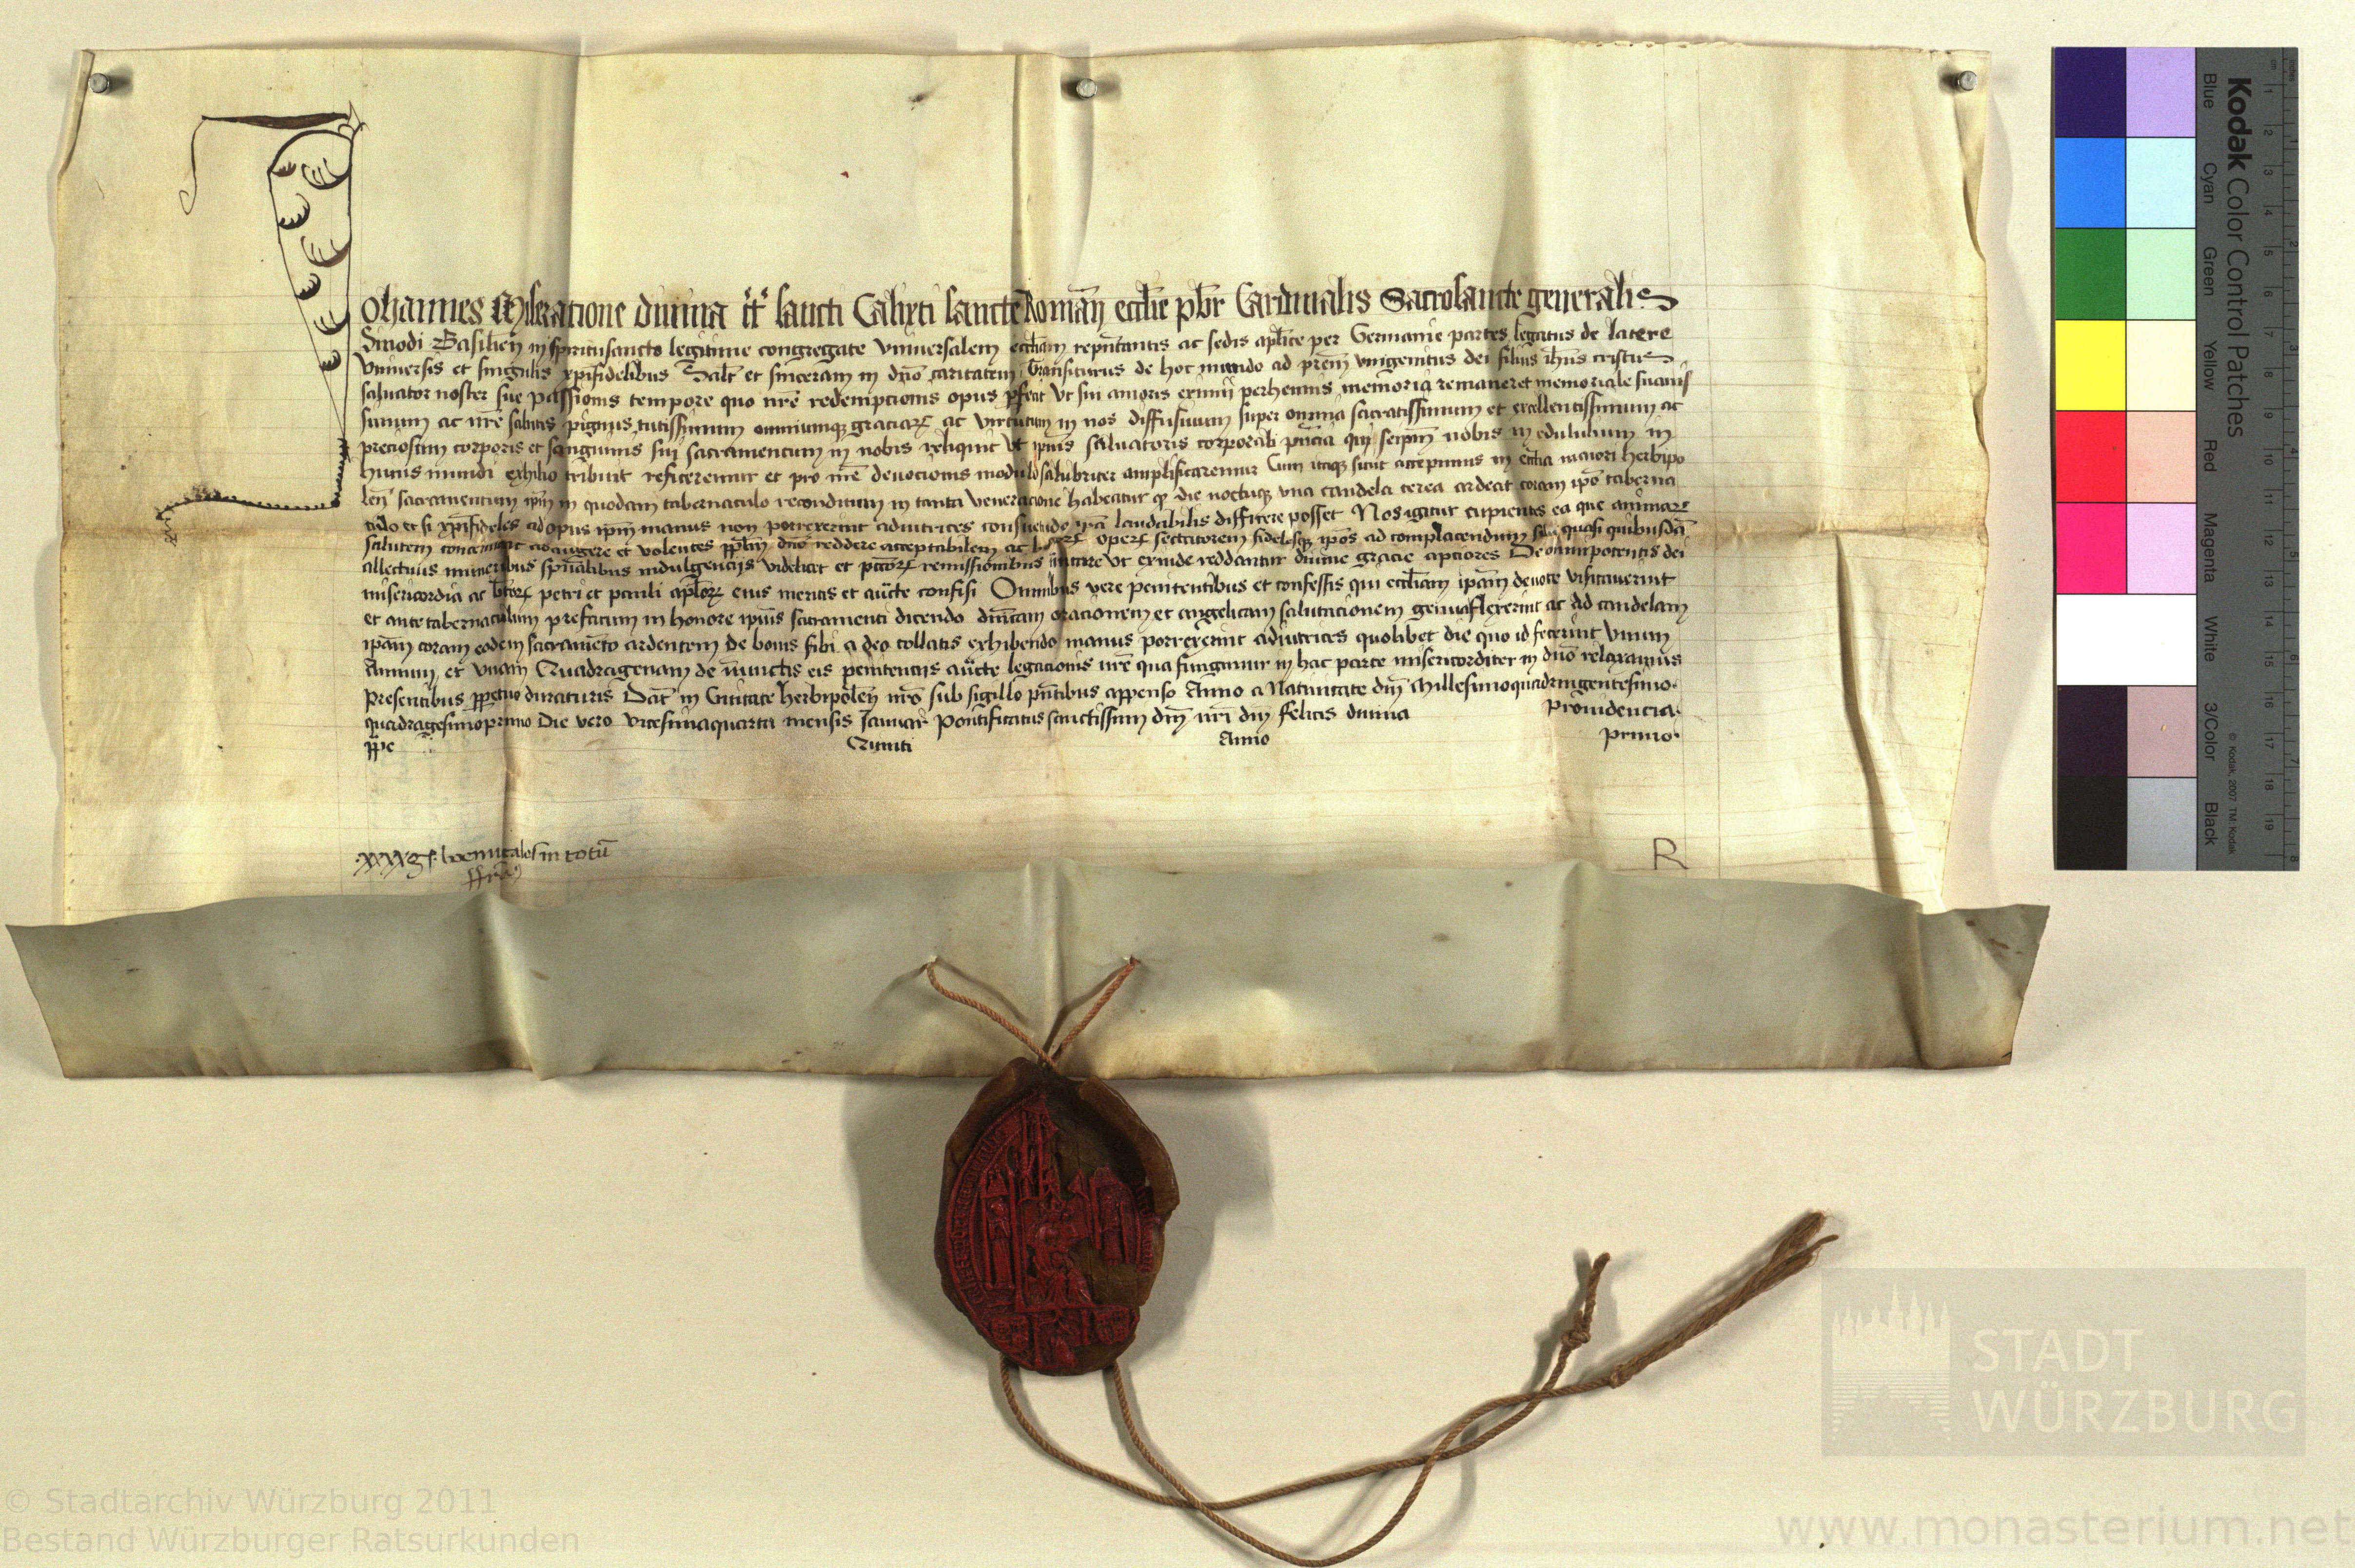 Johannes Miseratione diuina tt̄ sancti Calixti sancte Roman̄ eccl̄ie pb̄r Cardinalis Sacrosancte generalis
Sinodi Basilien̄ in spiritusancto legitime congregate vniuersalem eccl̄iam rep̄ntantis ac sedis apl̄ice per Germanie partes legatus de latere
Vniuersis et singulis xp̄ifidelibus Salt̄ et sinceram in dn̄o caritatem Transiturus de hoc mundo ad prēm vnigenitus dei filius ih̄us cristus
saluator noster sue passionis tempore quo nr̄e redempcionis opus ꝑfecit Vt sui amoris eximij perhennis memoria remaneret memoriale suauis
simum ac nr̄e salutis pignus tutissimum omniumqꝫ graciaꝝ ac virtutum in nos diffusiuum super omnia sacratissimum et excellentissimum ac
preciosum corporis et sanguinis sui sacramentum in nobis reliquit Vt ip̄ius saluatoris corporali pn̄cia qui seip̄m nobis in edulium in
huius mundi exhilio tribuit reficeremur et pro nr̄e deuocionis modulo salubriter amplificaremur Cum itaqꝫ sicut accepimus in eccl̄ia maiori herbipo
len̄ sacramentum ip̄m in quodam tabernaculo reconditum in tanta veneracione habeatur ꝙ die noctuqꝫ vna candela cerea ardeat coram ip̄o taberna
culo et si xp̄ifideles ad opus ip̄m manus non porrexerint adiutrices consuetudo ip̄a laudabilis difficere posset Nos igitur cupientes ea que animaꝝ
salutem concernunt adaugere et volentes pp̄lm dn̄o reddere acceptabilem ac bonoꝝ operꝝ sectatorem fidelesqꝫ ip̄os ad complacendum sibi quasi quibusdā
allectiuis muneribus sp̄ualibus indulgencijs videlicet et pctōꝝ remissionibus inuitare vt exinde reddantur diuine gracie apciores De omnipotentis dei
misericordia ac btōrꝝ petri et pauli apl̄orꝝ eius meritis et auc̄te confisi Omnibus vere penitentibus et confessis qui eccl̄iam ip̄am deuote visitauerint
et ante tabernaculum prefatum in honore ip̄ius sacramenti dicendo dn̄icam oracionem et angelicam salutacionem genuaflexerint ac ad candelam
ip̄am coram eodem sacramēto ardentem de bonis sibi a deo collatis exhibendo manus porrexerint adiutrices quolibet die quo id fecerint vnum
Annum et vnam Quadragenam de iniunctis eis penitencijs auc̄te legacionis nr̄e qua fungimur in hac parte misericorditer in dn̄o relaxamus
Presentibus ꝑpetuo duraturis Dat̄ in Ciuitate herbipolen̄ nr̄o sub sigillo pn̄tibus appenso Anno a Natiuitate dn̄i Millesimoquadringentesimo
quadragesimoprimo Die vero vicesimaquarta mensis Januar̄ Pontificatus sanctissimi dn̄i nr̄i dn̄i felicis diuina prouidencia
pp̄e Quinti Anno primo
R
Kodak Color Control Patches
Blue Cyan Green Yellow Red Magenta White 3/Color Black
© Kodak, 2007 TM: Kodak
inches
cm
1 2 3 4 5 6 7 8 9 10 11 12 13 14 15 16 17 18 19
1 2 3 4 5 6 7 8
STADT
WÜRZBURG
© Stadtarchiv Würzburg 2011
Bestand Würzburger Ratsurkunden
www.monasterium.net